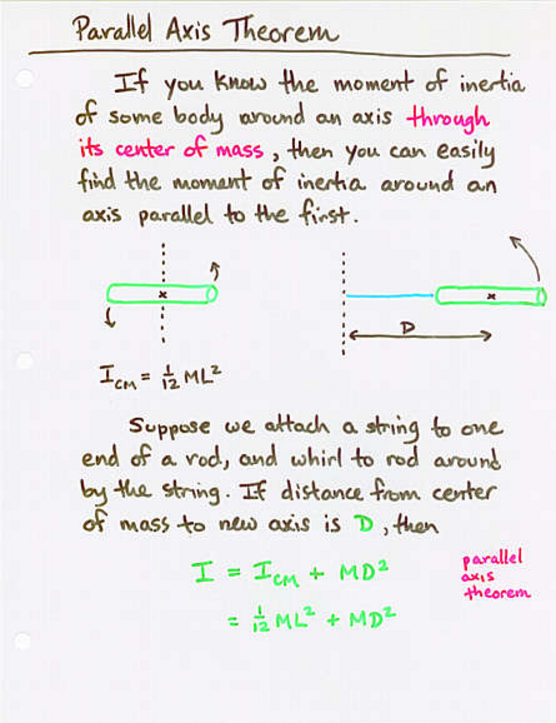 Parallel Axis Theorem
If you know the moment of inertia
of some body around an axis through
its center of mass, then you can easily
find the moment of inertia around an
axis parallel to the first.
D
I_CM = 1/12 ML²
Suppose we attach a string to one
end of a rod, and whirl to rod around
by the string. If distance from center
of mass to new axis is D, then
I = I_CM + MD²
parallel
axis
theorem
= 1/12 ML² + MD²